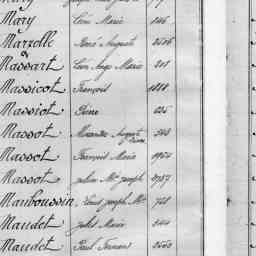 Mary Léon Marie 146
Marzelle René Auguste
Massart Léon Ange Marie 208
Massicot François 1888
Massiot Pierre 625
Massot Alexandre Auguste 548
Massot François Marie 1954
Massot Julien Mie Joseph 2757
Mauboussin Louis Joseph Mie 728
Maudet Jules Marie
Maudet Paul Fernand